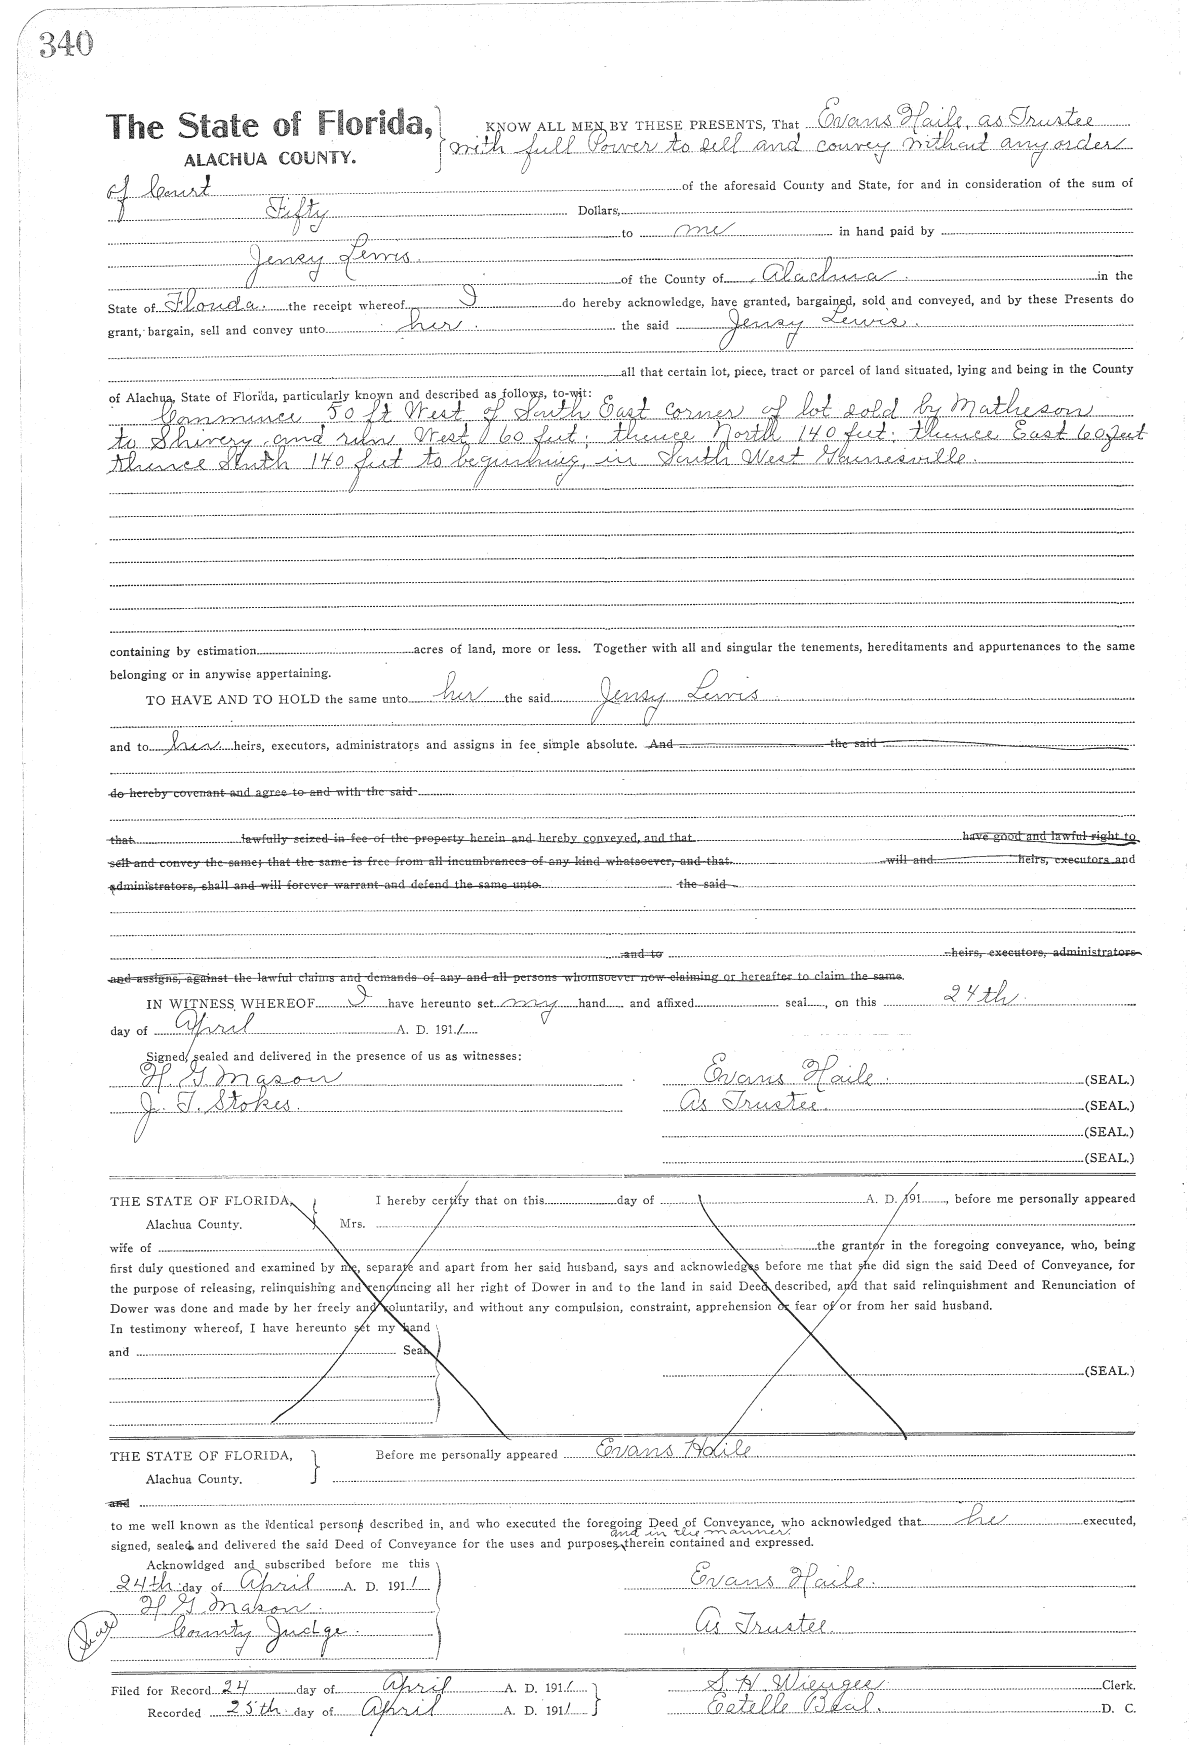 340
The State of Florida, KNOW ALL MEN BY THESE PRESENTS, That Evans Haile, as Trustee
ALACHUA COUNTY. with full Power to sell and convey without any order
of Court of the aforesaid County and State, for and in consideration of the sum of
Fifty Dollars,
to me in hand paid by
Jensy Lewis.
of the County of Alachua. in the
State of Florida. the receipt whereof I do hereby acknowledge, have granted, bargained, sold and conveyed, and by these Presents do
grant, bargain, sell and convey unto her. the said Jensy Lewis.
all that certain lot, piece, tract or parcel of land situated, lying and being in the County
of Alachua, State of Florida, particularly known and described as follows, to-wit:
Commence 50 ft West of South East corner of lot sold by Matheson
to Shivery and run West 60 feet; thence North 140 feet; thence East 60 feet
thence South 140 feet to beginning, in South West Gainesville.
containing by estimation acres of land, more or less. Together with all and singular the tenements, hereditaments and appurtenances to the same
belonging or in anywise appertaining.
TO HAVE AND TO HOLD the same unto her the said Jensy Lewis
and to her heirs, executors, administrators and assigns in fee simple absolute. And the said
do hereby covenant and agree to and with the said
that lawfully seized in fee of the property herein and hereby conveyed, and that have good and lawful right to
sell and convey the same; that the same is free from all incumbrances of any kind whatsoever, and that will and heirs, executors and
administrators, shall and will forever warrant and defend the same unto the said
and to heirs, executors, administrators
and assigns, against the lawful claims and demands of any and all persons whomsoever now claiming or hereafter to claim the same.
IN WITNESS WHEREOF I have hereunto set my hand and affixed seal, on this 24th
day of April A. D. 1911.
Signed, sealed and delivered in the presence of us as witnesses:
H. G. Mason Evans Haile. (SEAL.)
J. T. Stokes. As Trustee. (SEAL.)
(SEAL.)
(SEAL.)
THE STATE OF FLORIDA, I hereby certify that on this day of A. D. 191 , before me personally appeared
Alachua County. Mrs.
wife of the grantor in the foregoing conveyance, who, being
first duly questioned and examined by me, separate and apart from her said husband, says and acknowledges before me that she did sign the said Deed of Conveyance, for
the purpose of releasing, relinquishing and renouncing all her right of Dower in and to the land in said Deed described, and that said relinquishment and Renunciation of
Dower was done and made by her freely and voluntarily, and without any compulsion, constraint, apprehension or fear of or from her said husband.
In testimony whereof, I have hereunto set my hand
and Seal
(SEAL.)
THE STATE OF FLORIDA, Before me personally appeared Evans Haile
Alachua County.
and
to me well known as the identical persons described in, and who executed the foregoing Deed of Conveyance, who acknowledged that he executed,
and in the manner
signed, sealed and delivered the said Deed of Conveyance for the uses and purposes therein contained and expressed.
Acknowldged and subscribed before me this
24th day of April A. D. 1911 Evans Haile.
H. G. Mason.
Seal County Judge. As Trustee.
Filed for Record 24 day of April A. D. 1911. S. H. Wienges Clerk.
Recorded 25th day of April A. D. 1911 Estelle Beal. D. C.